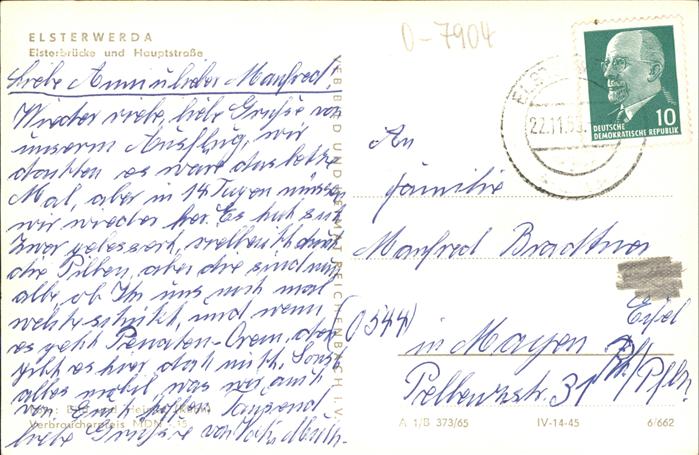 ELSTERWERDA
Elsterbrücke und Hauptstraße
0-7904
Liebe Anni u lieber Manfred!
Wieder viele, liebe Grüße von
unserm Ausflug, wir
dachten es wäre das letzte
Mal, aber in 14 Tagen müssen
wir wieder her. Es hat sich
zwar gebessert, vielleicht durch
die Pillen, aber die sind nun
alle, ob Ihr uns noch mal
welche schickt, und wenn
es geht Penaten-Crem, das
gibt es hier doch nicht. Sonst
alles was wir auch
von Euch hoffen. Tausend
liebe Grüsse von
Verbraucherpreis MDN
VERLAG BILD UND HEIMAT REICHENBACH I. V.
22.11.
10
DEUTSCHE
DEMOKRATISCHE REPUBLIK
An
Familie
Manfred Bradtner
(544) in Mayen Eifel
Rh/Pflz.
Pellenzstr. 31
A 1/B 373/65 IV-14-45 6/662